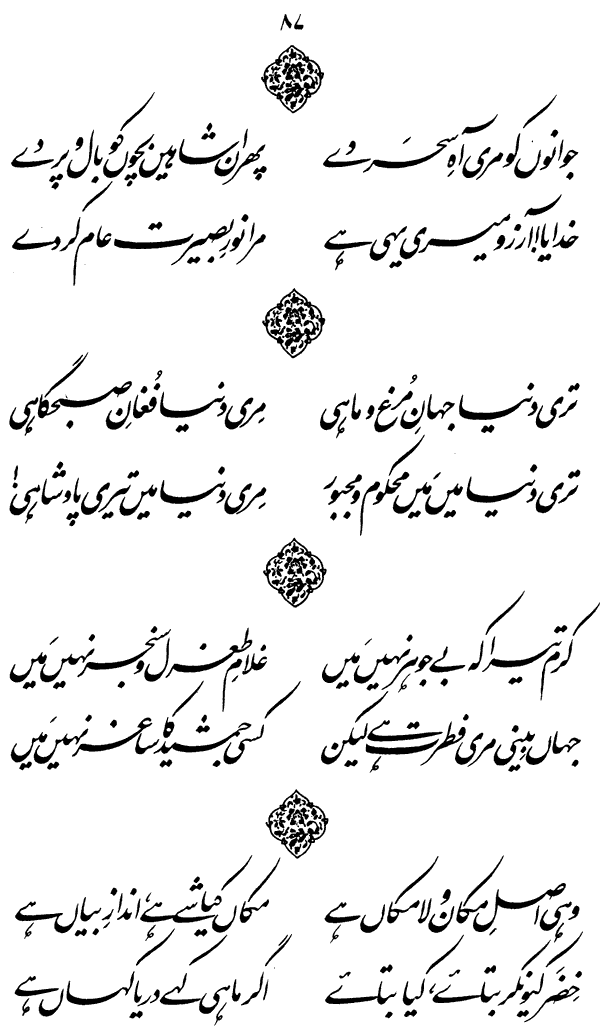 ۸۷
جوانوں کو مری آہِ سحَر دے پھر ان شاہیں بچوں کو بال و پر دے
خدایا! آرزو میری یہی ہے مرا نورِ بصیرت عام کر دے
تری دنیا جہانِ مُرغ و ماہی مِری دنیا فُغانِ صبحگاہی
تری دنیا میں مَیں محکوم و مجبور مِری دنیا میں تیری پادشاہی!
کرم تیرا کہ بے جوہر نہیں مَیں غلامِ طغرل و سنجر نہیں مَیں
جہاں بینی مری فطرت ہے لیکن کسی جمشید کا ساغر نہیں مَیں
وہی اصلِ مکان و لامکاں ہے مکاں کیا شے ہے، اندازِ بیاں ہے
خِضَر کیونکر بتائے، کیا بتائے اگر ماہی کہے دریا کہاں ہے